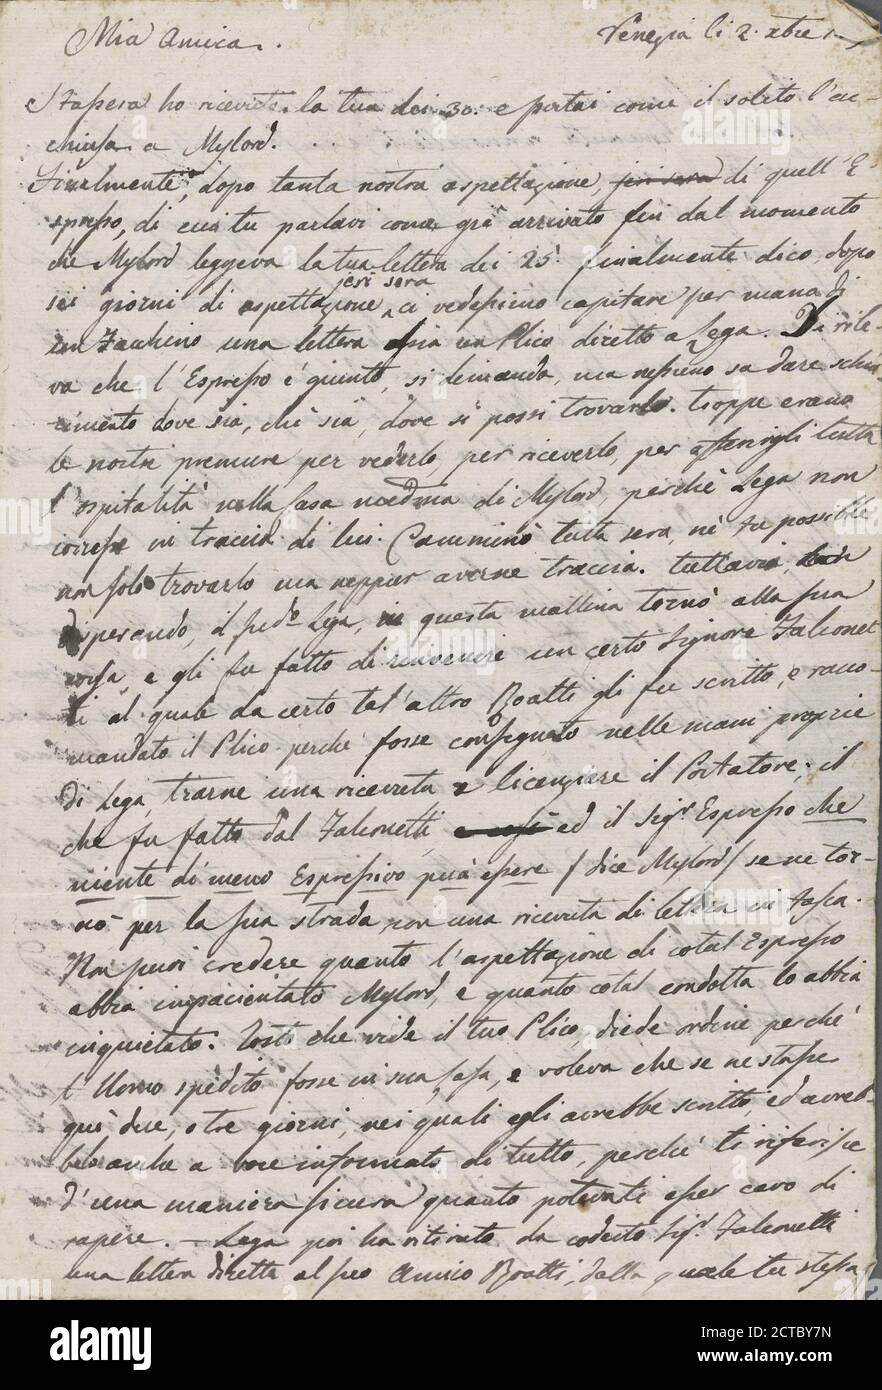 Mia Amica.
Venezia li 2. xbre
Stassera ho ricevuta la tua dei 30. e portai come il solito l'ac-
chiusa a Mylord.
Finalmente, dopo tanta nostra aspettazione, jeri sera di quell'E-
spresso, di cui tu parlavi come già arrivato fin dal momento
che Mylord leggeva la tua lettera dei 25. finalmente dico, dopo
sei giorni di aspettazione jeri sera ci vedessimo capitare per mana di
un Facchino una lettera ossia un Plico diretto a Lega. Si rile-
va che l'Espresso è giunto, si dimanda, ma nessuno sa dare schia-
rimento dove sia, chi sia, dove si possi trovarlo. Troppe erano
le nostre premure per vederlo, per riceverlo, per offerirgli tutta
l'ospitalità nella Casa medema di Mylord, perchè Lega non
corresse in traccia di lui. Camminò tutta sera, nè fu possibile
non solo trovarlo ma neppur averne traccia. Tuttavia,
disperando, il sud.o Lega, in questa mattina tornò alla sua
cosa, e gli fu fatto di rinvenire un certo Signore Falconet-
ti al quale da certo tal'altro Boatti gli fu scritto, e racco-
mandato il Plico perchè fosse consegnato nelle mani proprie
di Lega, trarne una ricevuta e licenziare il Portatore; il
che fu fatto dal Falconetti, e così ed il Sig.r Espresso che
niente di meno Espressivo può essere / dice Mylord / se ne tor-
nò per la sua strada con una ricevuta di lettera in tasca.
Non puoi credere quanto l'aspettazione di cotal Espresso
abbia impacientato Mylord, e quanto cotal condotta lo abbia
inquietato. Tosto che vide il tuo Plico, diede ordine perchè
l'Uomo spedito fosse in sua Casa, e voleva che se ne stasse
quì due, o tre giorni, nei quali egli avrebbe scritto, ed avreb-
belo anche a voce informato di tutto, perchè ti riferisse
d'una maniera sicura quanto potevati esser caro di
sapere. - Lega poi ha ritirato da codesto Sig.r Falconetti
una lettera diretta al suo Amico Boatti, dalla quale tu stessa
alamy
Image ID: 2CTBY7N
www.alamy.com